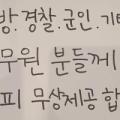 방.경찰.군인.기타
무원 분들께
피 무상제공 합